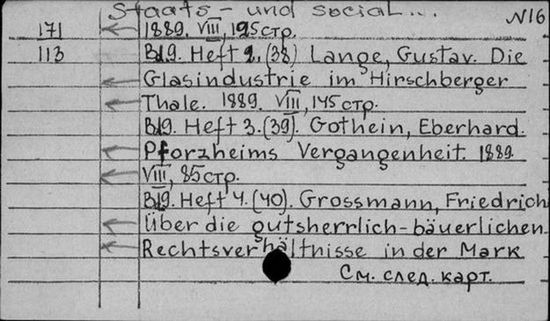 Staats- und social... N16
171 1889. VIII, 195 стр.
113 Bd9. Heft 2. (38) Lange, Gustav. Die
Glasindustrie im Hirschberger
Thale. 1889. VIII, 145 стр.
Bd9. Heft 3. (39). Gothein, Eberhard.
Pforzheims Vergangenheit. 1889.
VIII, 85 стр.
Bd9. Heft 4. (40). Grossmann, Friedrich
Über die gutsherrlich-bäuerlichen
Rechtsverhältnisse in der Mark
См. след. карт.